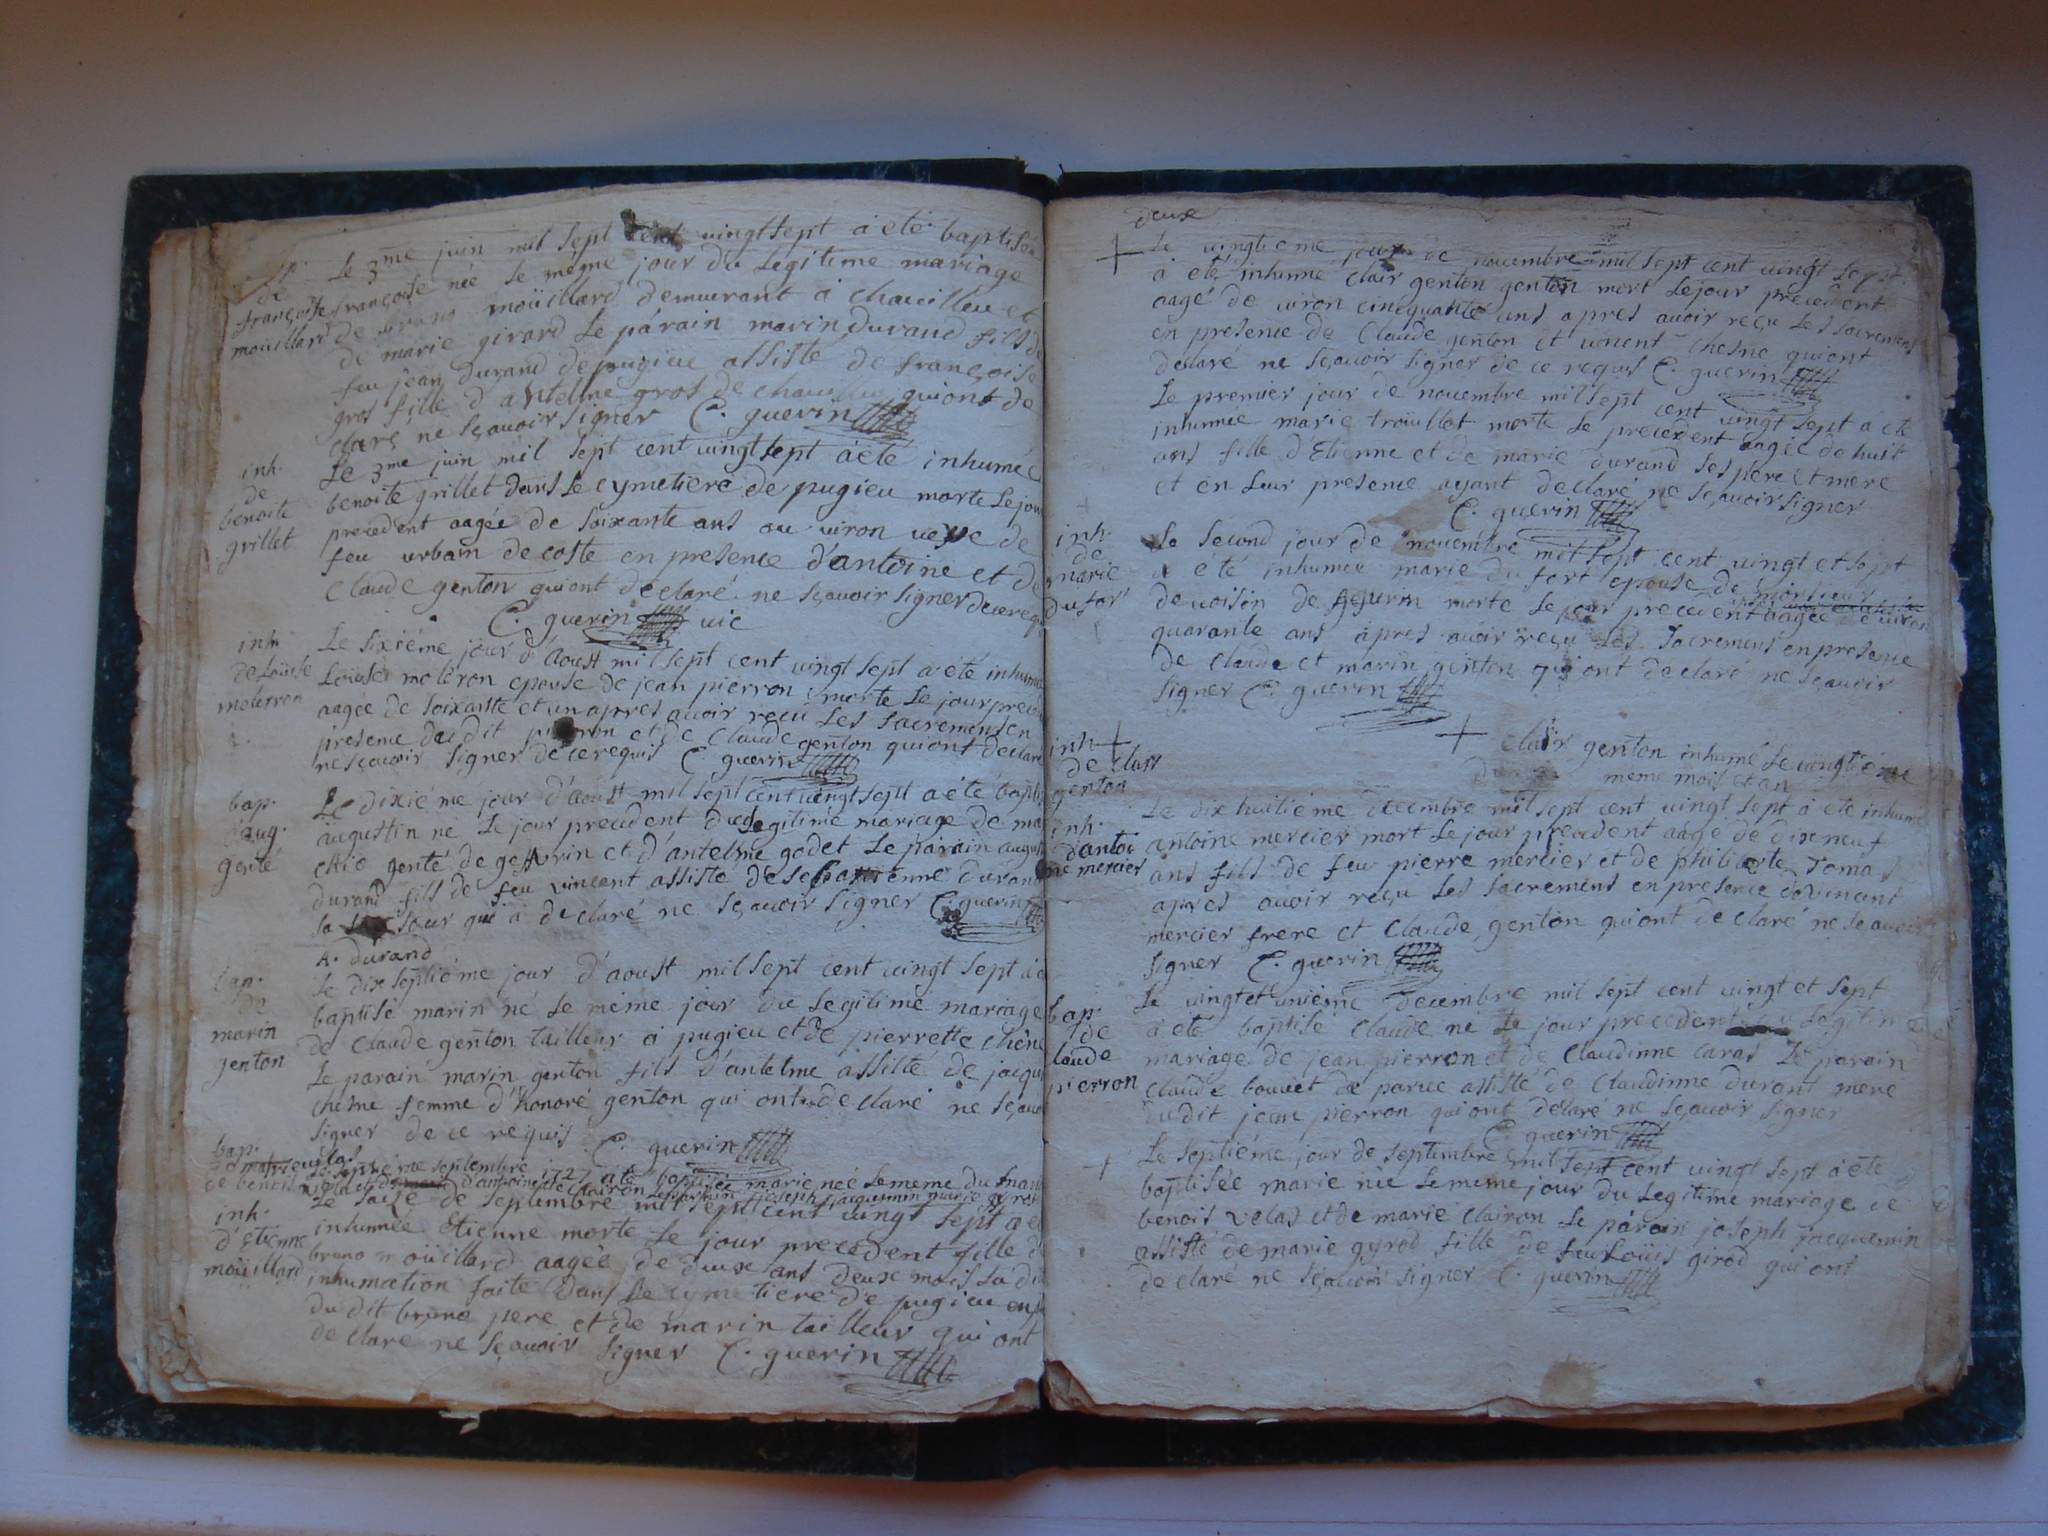 bap.
de
françoise
moüillard
Le 3me juin mil sept cent vingt sept a eté baptisée
françoise née le même jour du Legitime mariage
de bruno moüillard demeurant a chavillieu et
de marie girard Le parain marin durand fils de
feu jean durand de pugieu assisté de françoise
gros fille d'antelme gros de chavillieu qui ont de
claré ne sçavoir signer C. guerin
inh.
de
benoite
grillet
Le 3me juin mil sept cent vingt sept a eté inhumée
benoite grillet dans Le cymetiere de pugieu morte Le jour
precedent aagée de soixante ans ou viron veuve de
feu urbain de coste en presence d'antoine et de
Claude genton qui ont declaré ne sçavoir signer de ce requis
C. guerin vic
inh.
de Loüise
moleron
Le sixiéme jour d'aoust mil sept cent vingt sept a eté inhumée
Loüise moleron epouse de jean pierron morte Le jour precedent
aagee de soixante et un apres avoir reçu Les sacremens en
presence du dit pierron et de Claude genton qui ont declaré
ne sçavoir signer de ce requis C. guerin
bap.
d'aug.
genté
Le dixiéme jour d'aoust mil sept cent vingt sept a eté baptisé
augustin né Le jour precedent du Legitime mariage de
genté de et d'antelme godet Le parain augustin
durand fils de feu vincent assisté de sebastienne durand
sa soeur qui a declaré ne sçavoir signer C. guerin
A. durand
bap.
de
marin
genton
Le dix septiéme jour d'aoust mil sept cent vingt sept a eté
baptisé marin né le même jour du Legitime mariage
de Claude genton tailleur a pugieu et de pierrette chêne
Le parain marin genton fils d'antelme assisté de
chesne femme d'honoré genton qui ont declaré ne sçavoir
signer de ce requis C. guerin
bap.
de marie velas
Le septiéme septembre 1727 a eté baptisée marie née Le meme du
de benoit velas et d'antoinette clairon Le parain joseph jacquemin marie gyrod
inh.
d'Etienne
moüillard
Le saize de septembre mil sept cent vingt sept a eté
inhumée Etienne morte Le jour precedent fille de
bruno moüillard aagée de deux ans deux mois La dite
inhumation faite dans Le cymetiere de pugieu en presence
du dit bruno pere et de marin tailleur qui ont
declaré ne sçavoir signer C. guerin
deux
+ Le vingtieme jour de novembre mil sept cent vingt sept
a eté inhumé Clair genton mort Le jour precedent
aagé de viron cinquante ans apres avoir reçu Les sacremens
en presence de Claude genton et vincent chesne qui ont
declaré ne sçavoir signer de ce requis C. guerin
Le premier jour de novembre mil sept cent vingt sept a eté
inhumée marie troüillet morte Le precedent aagée de huit
ans fille d'Etienne et de marie durand ses pere et mere
et en Leur presence ayant declaré ne sçavoir signer
C. guerin
inh.
de
marie
du fort
Le second jour de novembre mil sept cent vingt et sept
a eté inhumee marie du fort epouse de
de voisin de morte Le jour precedent aagée de viron
quarante ans apres avoir reçu Les Sacremens en presence
de Claude et marin genton qui ont declaré ne sçavoir
signer C. guerin
inh +
de clair
genton
+ Clair genton inhumé Le vingtiéme
du meme mois et an
inh.
d'antoi
ne mercier
Le dix huitiéme decembre mil sept cent vingt sept a eté inhumé
antoine mercier mort Le jour precedent aagé de dix neuf
ans fils de feu pierre mercier et de philiberte Tomas
apres avoir reçu Les sacremens en presence de vincent
mercier frere et Claude genton qui ont declaré ne sçavoir
signer C. guerin
bap.
de
laude
pierron
Le vingt et uniéme decembre mil sept cent vingt et sept
a eté baptisé Claude né Le jour precedent du Legitime
mariage de jean pierron et de Claudinne caras Le parain
Claude bouvet de parve assisté de Claudinne durant mere
du dit jean pierron qui ont declaré ne sçavoir signer
C. guerin
+ Le septiéme jour de septembre mil sept cent vingt sept a eté
baptisée marie née Le meme jour du Legitime mariage de
benois velas et de marie clairon Le parain joseph jacquemin
assisté de marie gyrod fille de feu Louis girod qui ont
declaré ne sçavoir signer C. guerin